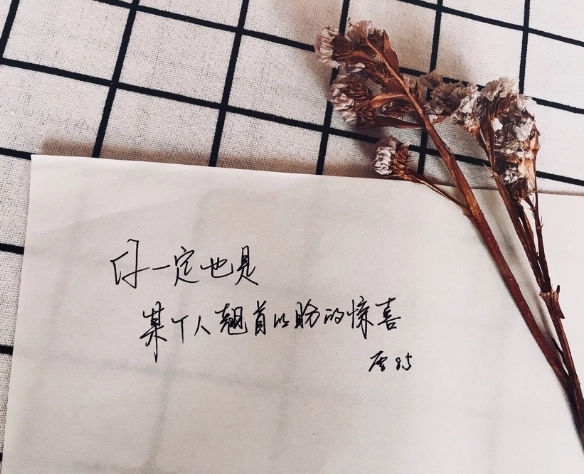 你一定也是
某个人翘首以盼的惊喜